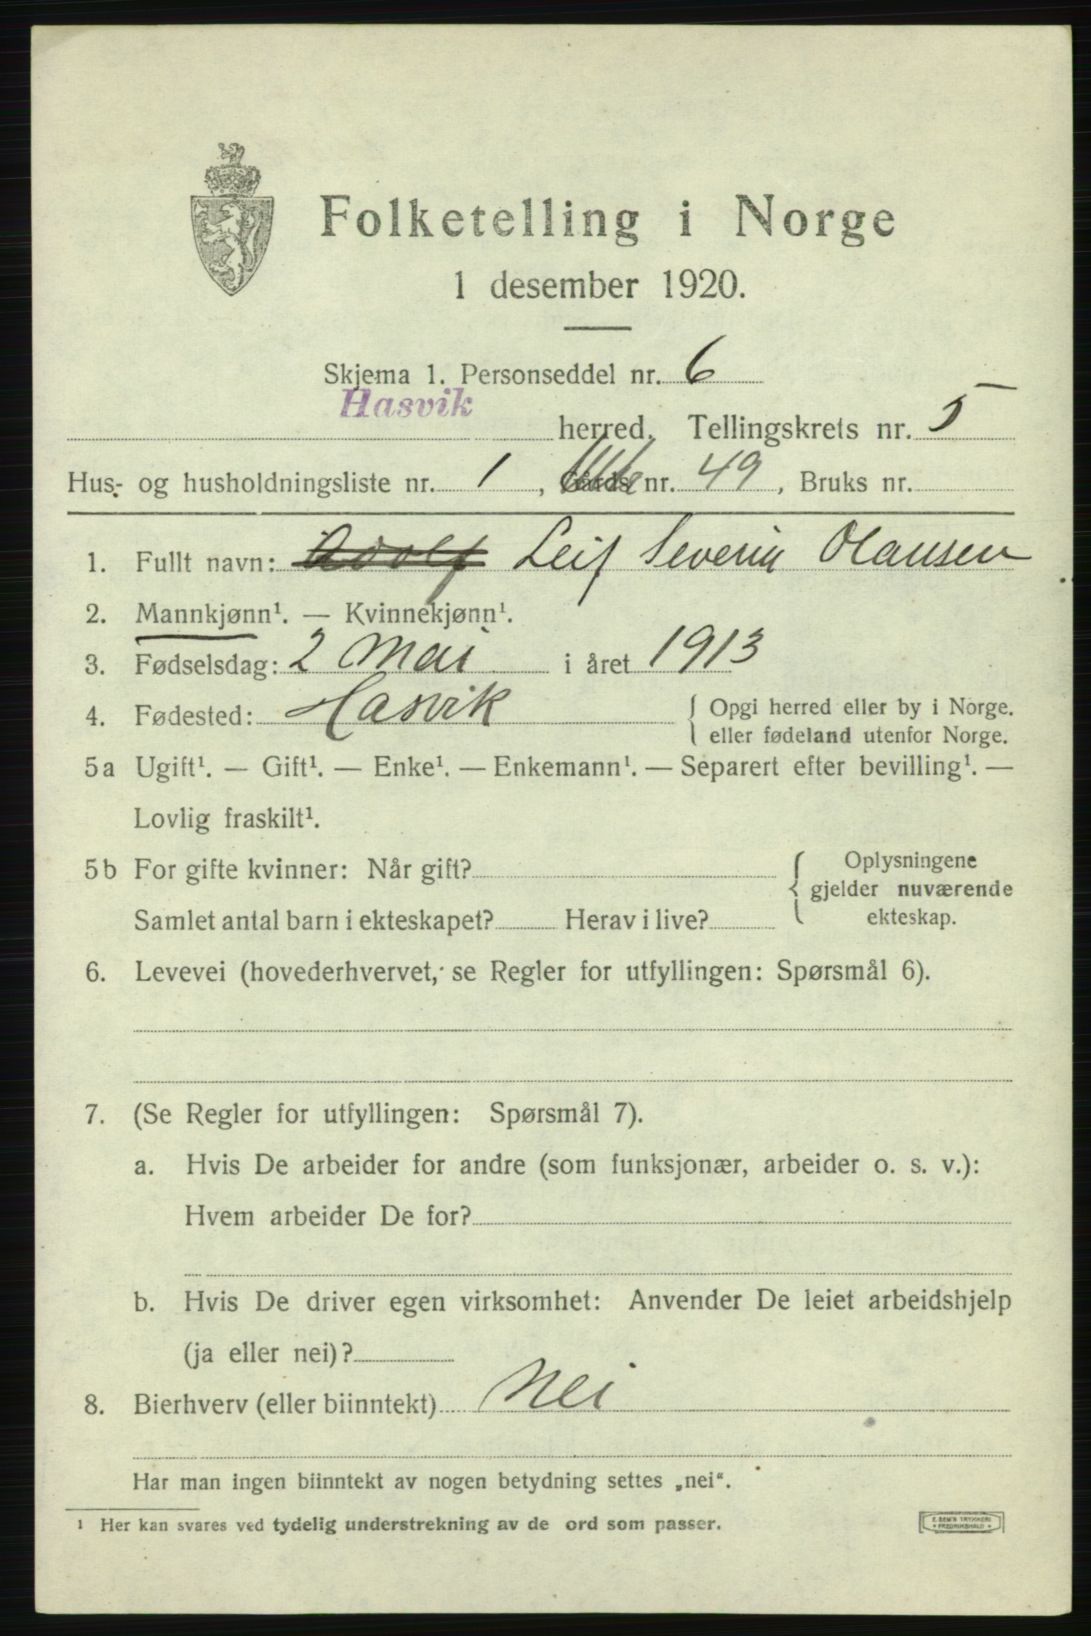 Folketelling i Norge
1 desember 1920.
Skjema 1. Personseddel nr. 6
Hasvik
herred. Tellingskrets nr. 5
Hus- og husholdningsliste nr. 1, Gårds nr. 49, Bruks nr.
1. Fullt navn: Adolf Leif Severin Olausen
2. Mannkjønn¹. — Kvinnekjønn¹.
3. Fødselsdag: 2 Mai i året 1913
4. Fødested: Hasvik { Opgi herred eller by i Norge.
eller fødeland utenfor Norge.
5a Ugift¹. — Gift¹. — Enke¹. — Enkemann¹. — Separert efter bevilling¹. —
Lovlig fraskilt¹.
5b For gifte kvinner: Når gift? { Oplysningene
gjelder nuværende
Samlet antal barn i ekteskapet? Herav i live? ekteskap.
6. Levevei (hovederhvervet, se Regler for utfyllingen: Spørsmål 6).
7. (Se Regler for utfyllingen: Spørsmål 7).
a. Hvis De arbeider for andre (som funksjonær, arbeider o. s. v.):
Hvem arbeider De for?
b. Hvis De driver egen virksomhet: Anvender De leiet arbeidshjelp
(ja eller nei)?
8. Bierhverv (eller biinntekt) Nei
Har man ingen biinntekt av nogen betydning settes „nei“.
¹ Her kan svares ved tydelig understrekning av de ord som passer.
E. SEM'S TRYKKERI
FREDRIKSHALD